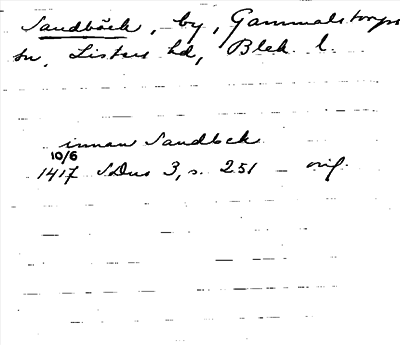 Sandbäck, by, Gammalstorps
sn, Listers hd, Blek. l.
innan Sandbek
10/6
1417 SDns 3, s. 251 — orig.